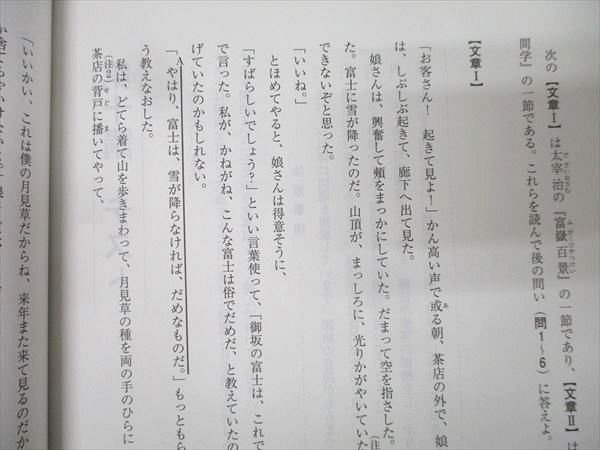 次の【文章Ⅰ】は太宰治の『富嶽百景』の一節であり、【文章Ⅱ】は
間学』の一節である。これらを読んで後の問い（問1～6）に答えよ。
【文章Ⅰ】
「お客さん！　起きて見よ！」かん高い声で或る朝、茶店の外で、娘
は、しぶしぶ起きて、廊下へ出て見た。
娘さんは、興奮して頰をまっかにしていた。だまって空を指さした。
た。富士に雪が降ったのだ。山頂が、まっしろに、光りかがやいていた
できないぞと思った。
「いいね。」
とほめてやると、娘さんは得意そうに、
「すばらしいでしょう？」といい言葉使って、「御坂の富士は、これで
で言った。私が、かねがね、こんな富士は俗でだめだ、と教えていたの
げていたのかもしれない。
「やはり、富士は、雪が降らなければ、だめなものだ。」もっともら
う教えなおした。
私は、どてら着て山を歩きまわって、月見草の種を両の手のひらに
茶店の背戸に播いてやって、
「いいかい、これは僕の月見草だからね、来年また来て見るのだか